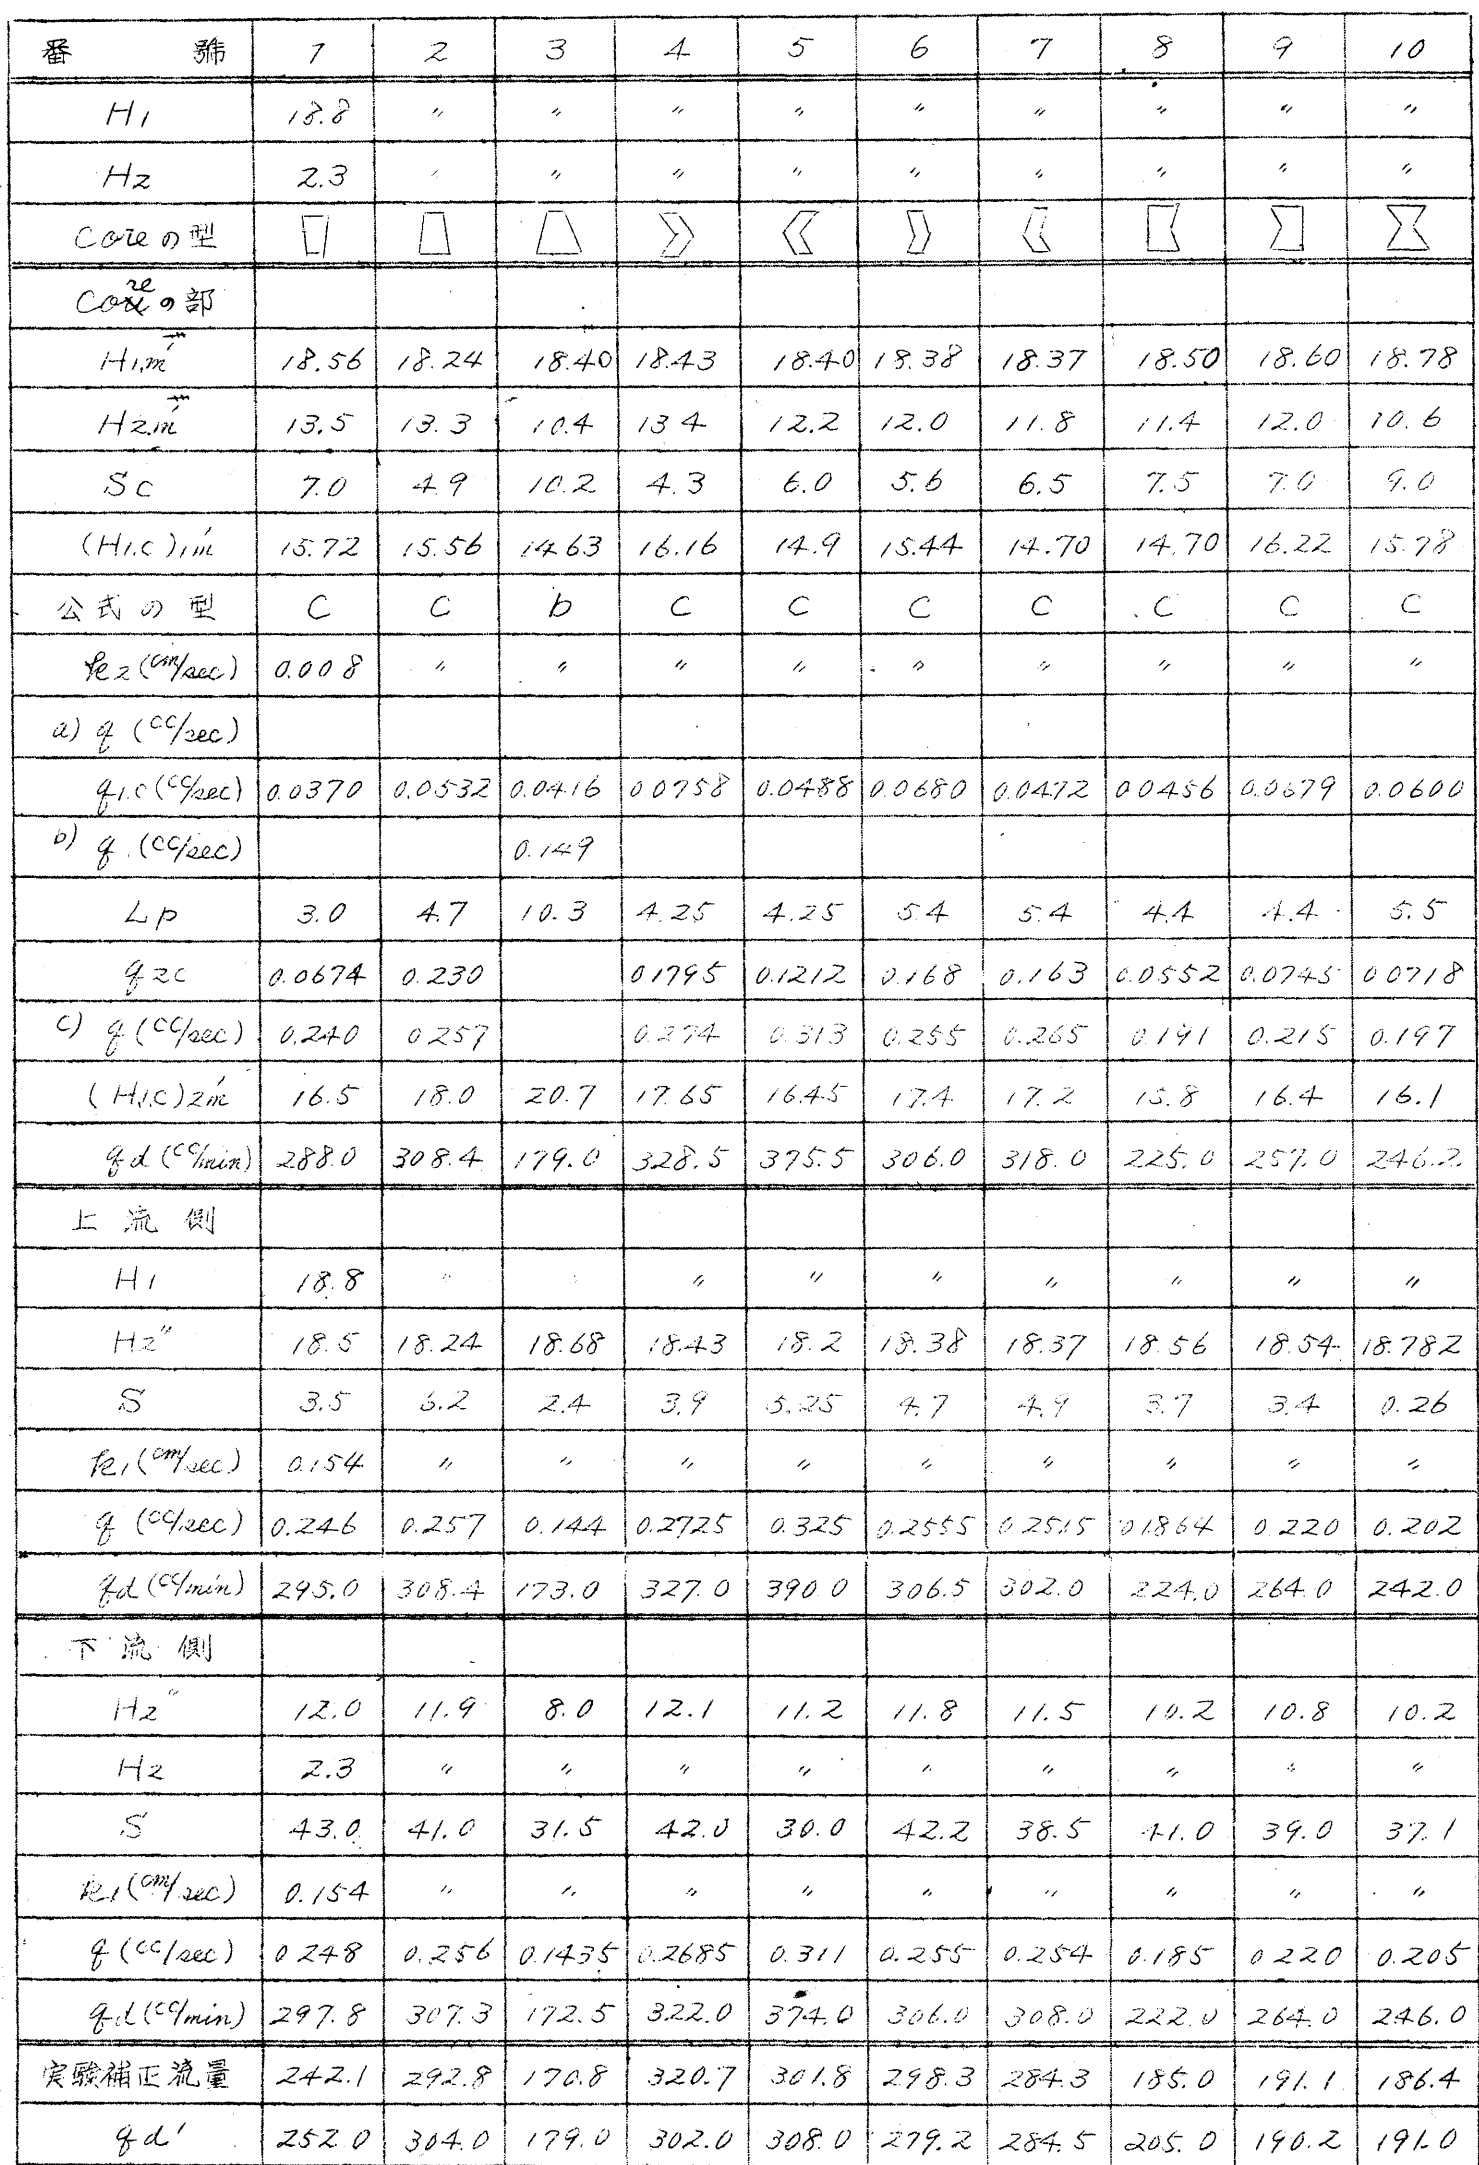 番 號 1 2 3 4 5 6 7 8 9 10
H1 18.8 〃 〃 〃 〃 〃 〃 〃 〃 〃
H2 2.3 〃 〃 〃 〃 〃 〃 〃 〃 〃
Coreの型
Coreの部
H1,m' 18.56 18.24 18.40 18.43 18.40 18.38 18.37 18.50 18.60 18.78
H2,m' 13.5 13.3 10.4 13.4 12.2 12.0 11.8 11.4 12.0 10.6
Sc 7.0 4.9 10.2 4.3 6.0 5.6 6.5 7.5 7.0 9.0
(H1.c)1m' 15.72 15.56 14.63 16.16 14.9 15.44 14.70 14.70 16.22 15.78
公式の型 C C b C C C C C C C
k2(cm/sec) 0.008 〃 〃 〃 〃 〃 〃 〃 〃 〃
a) q (cc/sec)
q1.c(cc/sec) 0.0370 0.0532 0.0416 0.0758 0.0488 0.0680 0.0472 0.0456 0.0679 0.0600
b) q (cc/sec) 0.149
Lp 3.0 4.7 10.3 4.25 4.25 5.4 5.4 4.4 4.4 5.5
q2c 0.0674 0.230 0.1795 0.1212 0.168 0.163 0.0552 0.0745 0.0718
c) q (cc/sec) 0.240 0.257 0.274 0.313 0.255 0.265 0.191 0.215 0.197
(H1.c)2m' 16.5 18.0 20.7 17.65 16.45 17.4 17.2 15.8 16.4 16.1
qd (cc/min) 288.0 308.4 179.0 328.5 375.5 306.0 318.0 225.0 257.0 246.2
上 流 側
H1 18.8 〃 〃 〃 〃 〃 〃 〃 〃 〃
H2" 18.5 18.24 18.68 18.43 18.2 18.38 18.37 18.56 18.54 18.782
S 3.5 5.2 2.4 3.9 5.25 4.7 4.9 3.7 3.4 0.26
k1(cm/sec) 0.154 〃 〃 〃 〃 〃 〃 〃 〃 〃
q (cc/sec) 0.246 0.257 0.144 0.2725 0.325 0.2555 0.2515 0.1864 0.220 0.202
qd (cc/min) 295.0 308.4 173.0 327.0 390.0 306.5 302.0 224.0 264.0 242.0
下 流 側
H2" 12.0 11.9 8.0 12.1 11.2 11.8 11.5 10.2 10.8 10.2
H2 2.3 〃 〃 〃 〃 〃 〃 〃 〃 〃
S 43.0 41.0 31.5 42.0 30.0 42.2 38.5 41.0 39.0 37.1
k1(cm/sec) 0.154 〃 〃 〃 〃 〃 〃 〃 〃 〃
q (cc/sec) 0.248 0.256 0.1435 0.2685 0.311 0.255 0.254 0.185 0.220 0.205
qd(cc/min) 297.8 307.3 172.5 322.0 374.0 306.0 308.0 222.0 264.0 246.0
実験補正流量 242.1 292.8 170.8 320.7 301.8 298.3 284.3 185.0 191.1 186.4
qd' 252.0 304.0 179.0 302.0 308.0 279.2 284.5 205.0 190.2 191.0